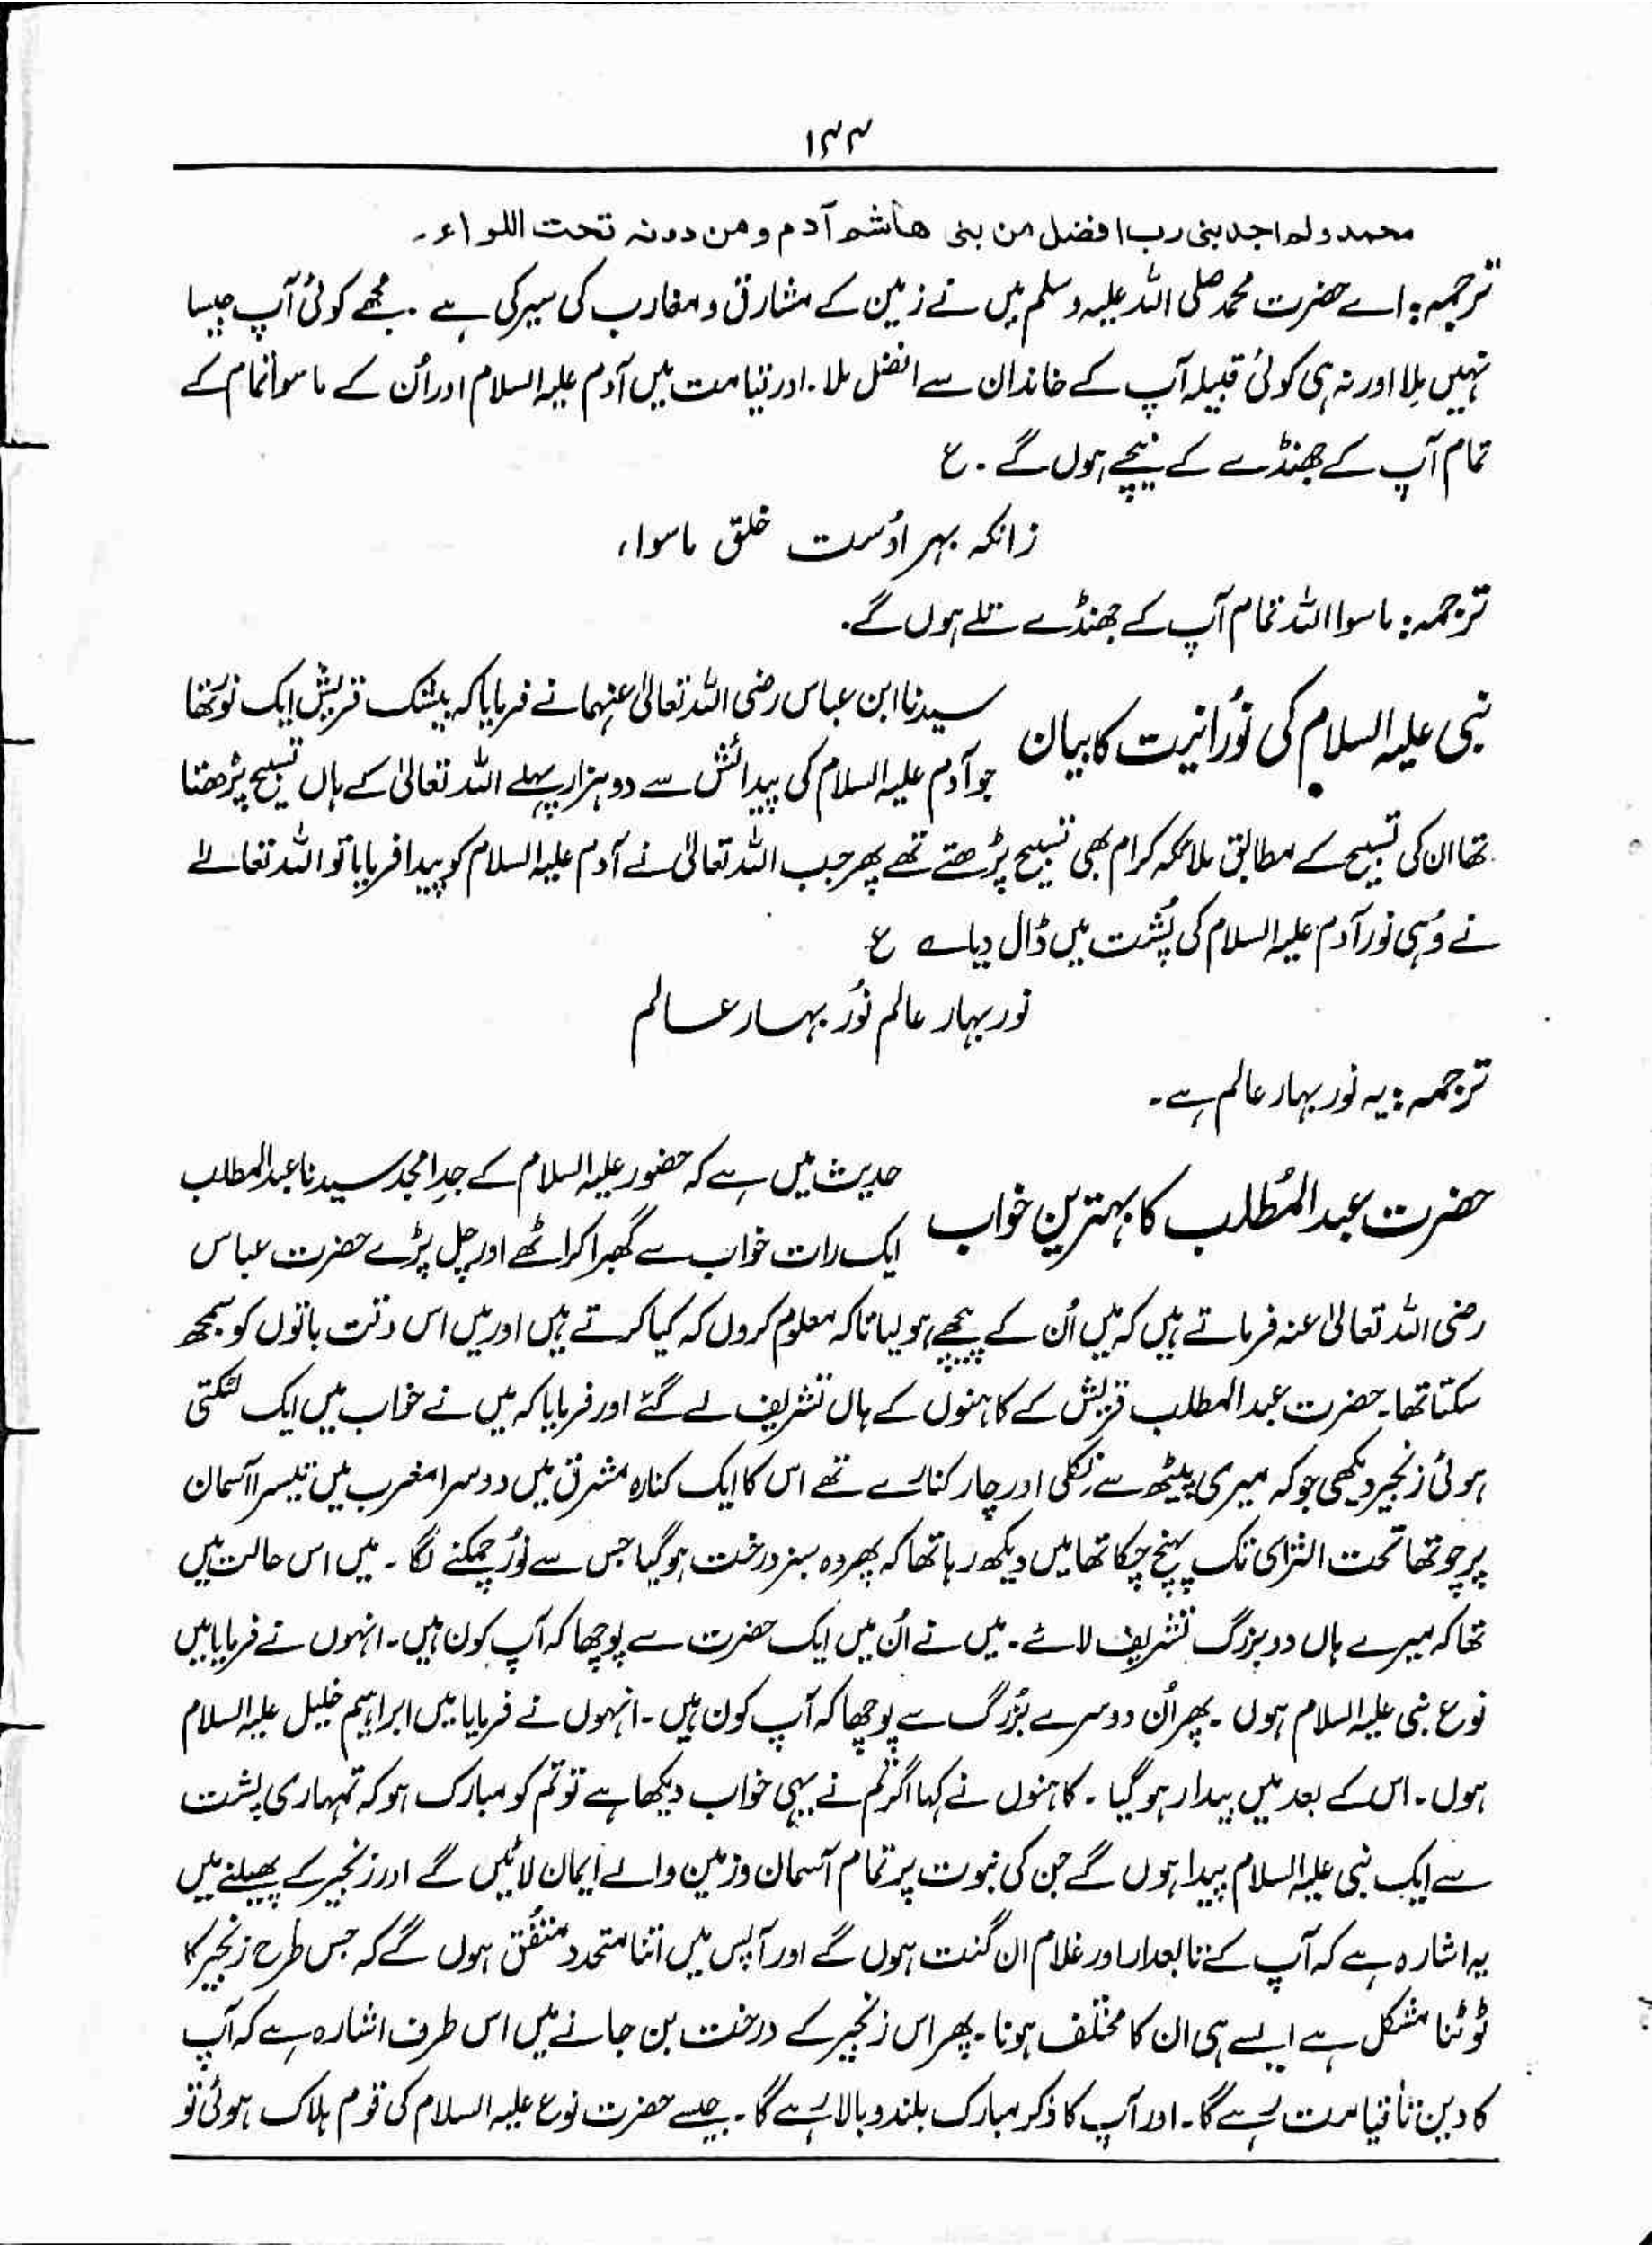 ۱۴۴
محمد ولم اجد بنی رب افضل من بنی ھاشم آدم ومن دونہ تحت اللواء۔
ترجمہ: اے حضرت محمد صلی اللہ علیہ وسلم میں نے زمین کے مشارق و مغارب کی سیر کی ہے ۔ مجھے کوئی آپ جیسا
نہیں ملا اور نہ ہی کوئی قبیلہ آپ کے خاندان سے افضل ملا ۔ اور قیامت میں آدم علیہ السلام اور اُن کے ماسوا تمام کے
تمام آپ کے جھنڈے کے نیچے ہوں گے ۔ ع
زانکہ بہر اوست خلق ماسواء
ترجمہ: ماسوا اللہ تمام آپ کے جھنڈے تلے ہوں گے۔
نبی علیہ السلام کی نُورانیت کا بیان
سیدنا ابن عباس رضی اللہ تعالیٰ عنہما نے فرمایا کہ بیشک قریش ایک نُور تھا
جو آدم علیہ السلام کی پیدائش سے دو ہزار پہلے اللہ تعالیٰ کے ہاں تسبیح پڑھتا
تھا ان کی تسبیح کے مطابق ملائکہ کرام بھی تسبیح پڑھتے تھے پھر جب اللہ تعالیٰ نے آدم علیہ السلام کو پیدا فرمایا تو اللہ تعالےٰ
نے وُہی نور آدم علیہ السلام کی پُشت میں ڈال دیا ؎ ع
نور بہار عالم نُور بہار عالم
ترجمہ: یہ نور بہار عالم ہے۔
حضرت عبد المُطلب کا بہترین خواب
حدیث میں ہے کہ حضور علیہ السلام کے جدِ امجد سیدنا عبد المطلب
ایک رات خواب سے گھبرا کر اٹھے اور چل پڑے حضرت عباس
رضی اللہ تعالیٰ عنہ فرماتے ہیں کہ میں اُن کے پیچھے ہو لیا تاکہ معلوم کروں کہ کیا کرتے ہیں اور میں اس وقت باتوں کو سمجھ
سکتا تھا۔ حضرت عبد المطلب قریش کے کاہنوں کے ہاں تشریف لے گئے اور فرمایا کہ میں نے خواب میں ایک لٹکتی
ہوئی زنجیر دیکھی جو کہ میری پیٹھ سے نکلی اور چار کنارے تھے اس کا ایک کنارہ مشرق میں دوسرا مغرب میں تیسرا آسمان
پر چوتھا تحت الثرای تک پہنچ چکا تھا میں دیکھ رہا تھا کہ پھر وہ سبز درخت ہو گیا جس سے نُور چمکنے لگا ۔ میں اس حالت میں
تھا کہ میرے ہاں دو بزرگ تشریف لائے ۔ میں نے اُن میں ایک حضرت سے پوچھا کہ آپ کون ہیں۔ انہوں نے فرمایا میں
نوع نبی علیہ السلام ہوں ۔ پھر اُن دوسرے بُزرگ سے پوچھا کہ آپ کون ہیں ۔ انہوں نے فرمایا میں ابراہیم خلیل علیہ السلام
ہوں ۔ اس کے بعد میں بیدار ہو گیا ۔ کاہنوں نے کہا اگر تم نے یہی خواب دیکھا ہے تو تم کو مبارک ہو کہ تمہاری پشت
سے ایک نبی علیہ السلام پیدا ہوں گے جن کی نبوت پر تمام آسمان و زمین والے ایمان لائیں گے اور زنجیر کے پھیلنے میں
یہ اشارہ ہے کہ آپ کے تابعدار اور غلام ان گنت ہوں گے اور آپس میں اتنا متحد و متفق ہوں گے کہ جس طرح زنجیر کا
ٹوٹنا مشکل ہے ایسے ہی ان کا مختلف ہونا ۔ پھر اس زنجیر کے درخت بن جانے میں اس طرف اشارہ ہے کہ آپ
کا دین تاقیامت رہے گا ۔ اور آپ کا ذکر مبارک بلند و بالا رہے گا ۔ جیسے حضرت نوع علیہ السلام کی قوم ہلاک ہوئی تو